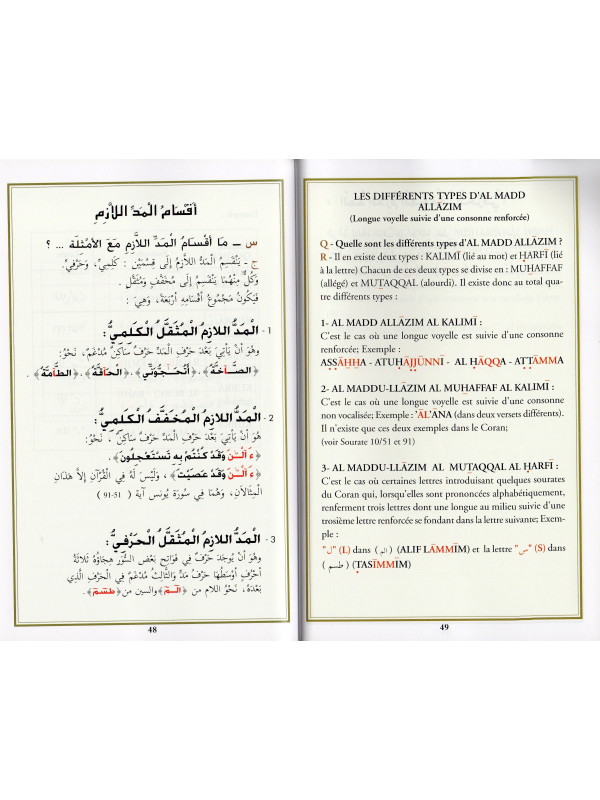 أَقْسَامُ الْمَدِّ اللَّازِمِ
س ــ مَا أَقْسَامُ الْمَدِّ اللَّازِمِ مَعَ الأَمْثِلَةِ ... ؟
ج ـ يَنْقَسِمُ الْمَدُّ اللَّازِمُ إِلَى قِسْمَيْنِ : كَلِمِيٍّ، وَحَرْفِيٍّ.
وَكُلٌّ مِنْهُمَا يَنْقَسِمُ إِلَى مُخَفَّفٍ وَمُثَقَّلٍ .
فَيَكُونُ مَجْمُوعُ أَقْسَامِهِ أَرْبَعَةً، وَهِيَ :
1 - الْمَدُّ اللَّازِمُ الْمُثَقَّلُ الْكَلِمِيُّ :
وَهُوَ أَنْ يَأْتِيَ بَعْدَ حَرْفِ الْمَدِّ حَرْفٌ سَاكِنٌ مُدْغَمٌ، نَحْوُ :
﴿الصَّآخَّةُ﴾ . ﴿أَتُحَآجُّوٓنِّي﴾ . ﴿الْحَآقَّةُ﴾ . ﴿الطَّآمَّةُ﴾ .
2 - الْمَدُّ اللَّازِمُ الْمُخَفَّفُ الْكَلِمِيُّ :
هُوَ أَنْ يَأْتِيَ بَعْدَ حَرْفِ الْمَدِّ حَرْفٌ سَاكِنٌ ، نَحْوُ :
﴿ءَآلْـَٰنَ وَقَدْ كُنْتُمْ بِهِ تَسْتَعْجِلُونَ﴾ .
﴿ءَآلْـَٰنَ وَقَدْ عَصَيْتَ﴾ ، وَلَيْسَ لَهُ فِي الْقُرْآنِ إِلاَّ هَذَانِ
الْمِثَالاَنِ، وَهُمَا فِي سُورَةِ يُونُسَ آيَة (51- 91)
3 - الْمَدُّ اللَّازِمُ الْمُثَقَّلُ الْحَرْفِيُّ :
وَهُوَ أَنْ يُوجَدَ حَرْفٌ فِي فَوَاتِحِ بَعْضِ السُّوَرِ هِجَاؤُهُ ثَلَاثَةُ
أَحْرُفٍ أَوْسَطُهَا حَرْفُ مَدٍّ وَالثَّالِثُ مُدْغَمٌ فِي الْحَرْفِ الَّذِي
بَعْدَهُ، نَحْوُ اللام من ﴿الٓمٓ﴾ والسين من ﴿طسٓمٓ﴾ .
48
LES DIFFÉRENTS TYPES D'AL MADD
ALLĀZIM
(Longue voyelle suivie d'une consonne renforcée)
Q - Quelle sont les différents types d'AL MADD ALLĀZIM ?
R - Il en existe deux types : KALIMĪ (lié au mot) et ḤARFĪ (lié
à la lettre) Chacun de ces deux types se divise en : MUḪAFFAF
(allégé) et MUṬAQQAL (alourdi). Il existe donc au total qua-
tre différents types :
1- AL MADD ALLĀZIM AL KALIMĪ :
C'est le cas où une longue voyelle est suivie d'une consonne
renforcée; Exemple :
ASSĀḪḪA - ATUḤĀJJŪNNĪ - AL ḤĀQQA - AṬṬĀMMA
2- AL MADDU-LLĀZIM AL MUḪAFFAF AL KALIMĪ :
C'est le cas où une longue voyelle est suivie d'une consonne
non vocalisée; Exemple : 'ĀL'ANA (dans deux versets différents).
Il n'existe que ces deux exemples dans le Coran;
(voir Sourate 10/51 et 91)
3- AL MADDU-LLĀZIM AL MUṬAQQAL AL ḤARFĪ :
C'est le cas où certaines lettres introduisant quelques sourates
du Coran qui, lorsqu'elles sont prononcées alphabétiquement,
renferment trois lettres dont une longue au milieu suivie d'une
troisième lettre renforcée se fondant dans la lettre suivante; Exem-
ple :
"ل" (L) dans ( الم ) (ALIF LĀMMĪM) et la lettre "س" (S) dans
( طسم ) (ṬASĪMMĪM)
49